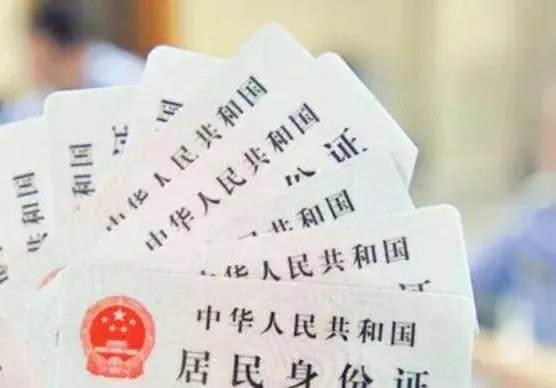 和国
和国
证
中华人民共和国
中华人民共和国
份证
和国
中华人民共和国
证
中华人民共和国
居民身份证